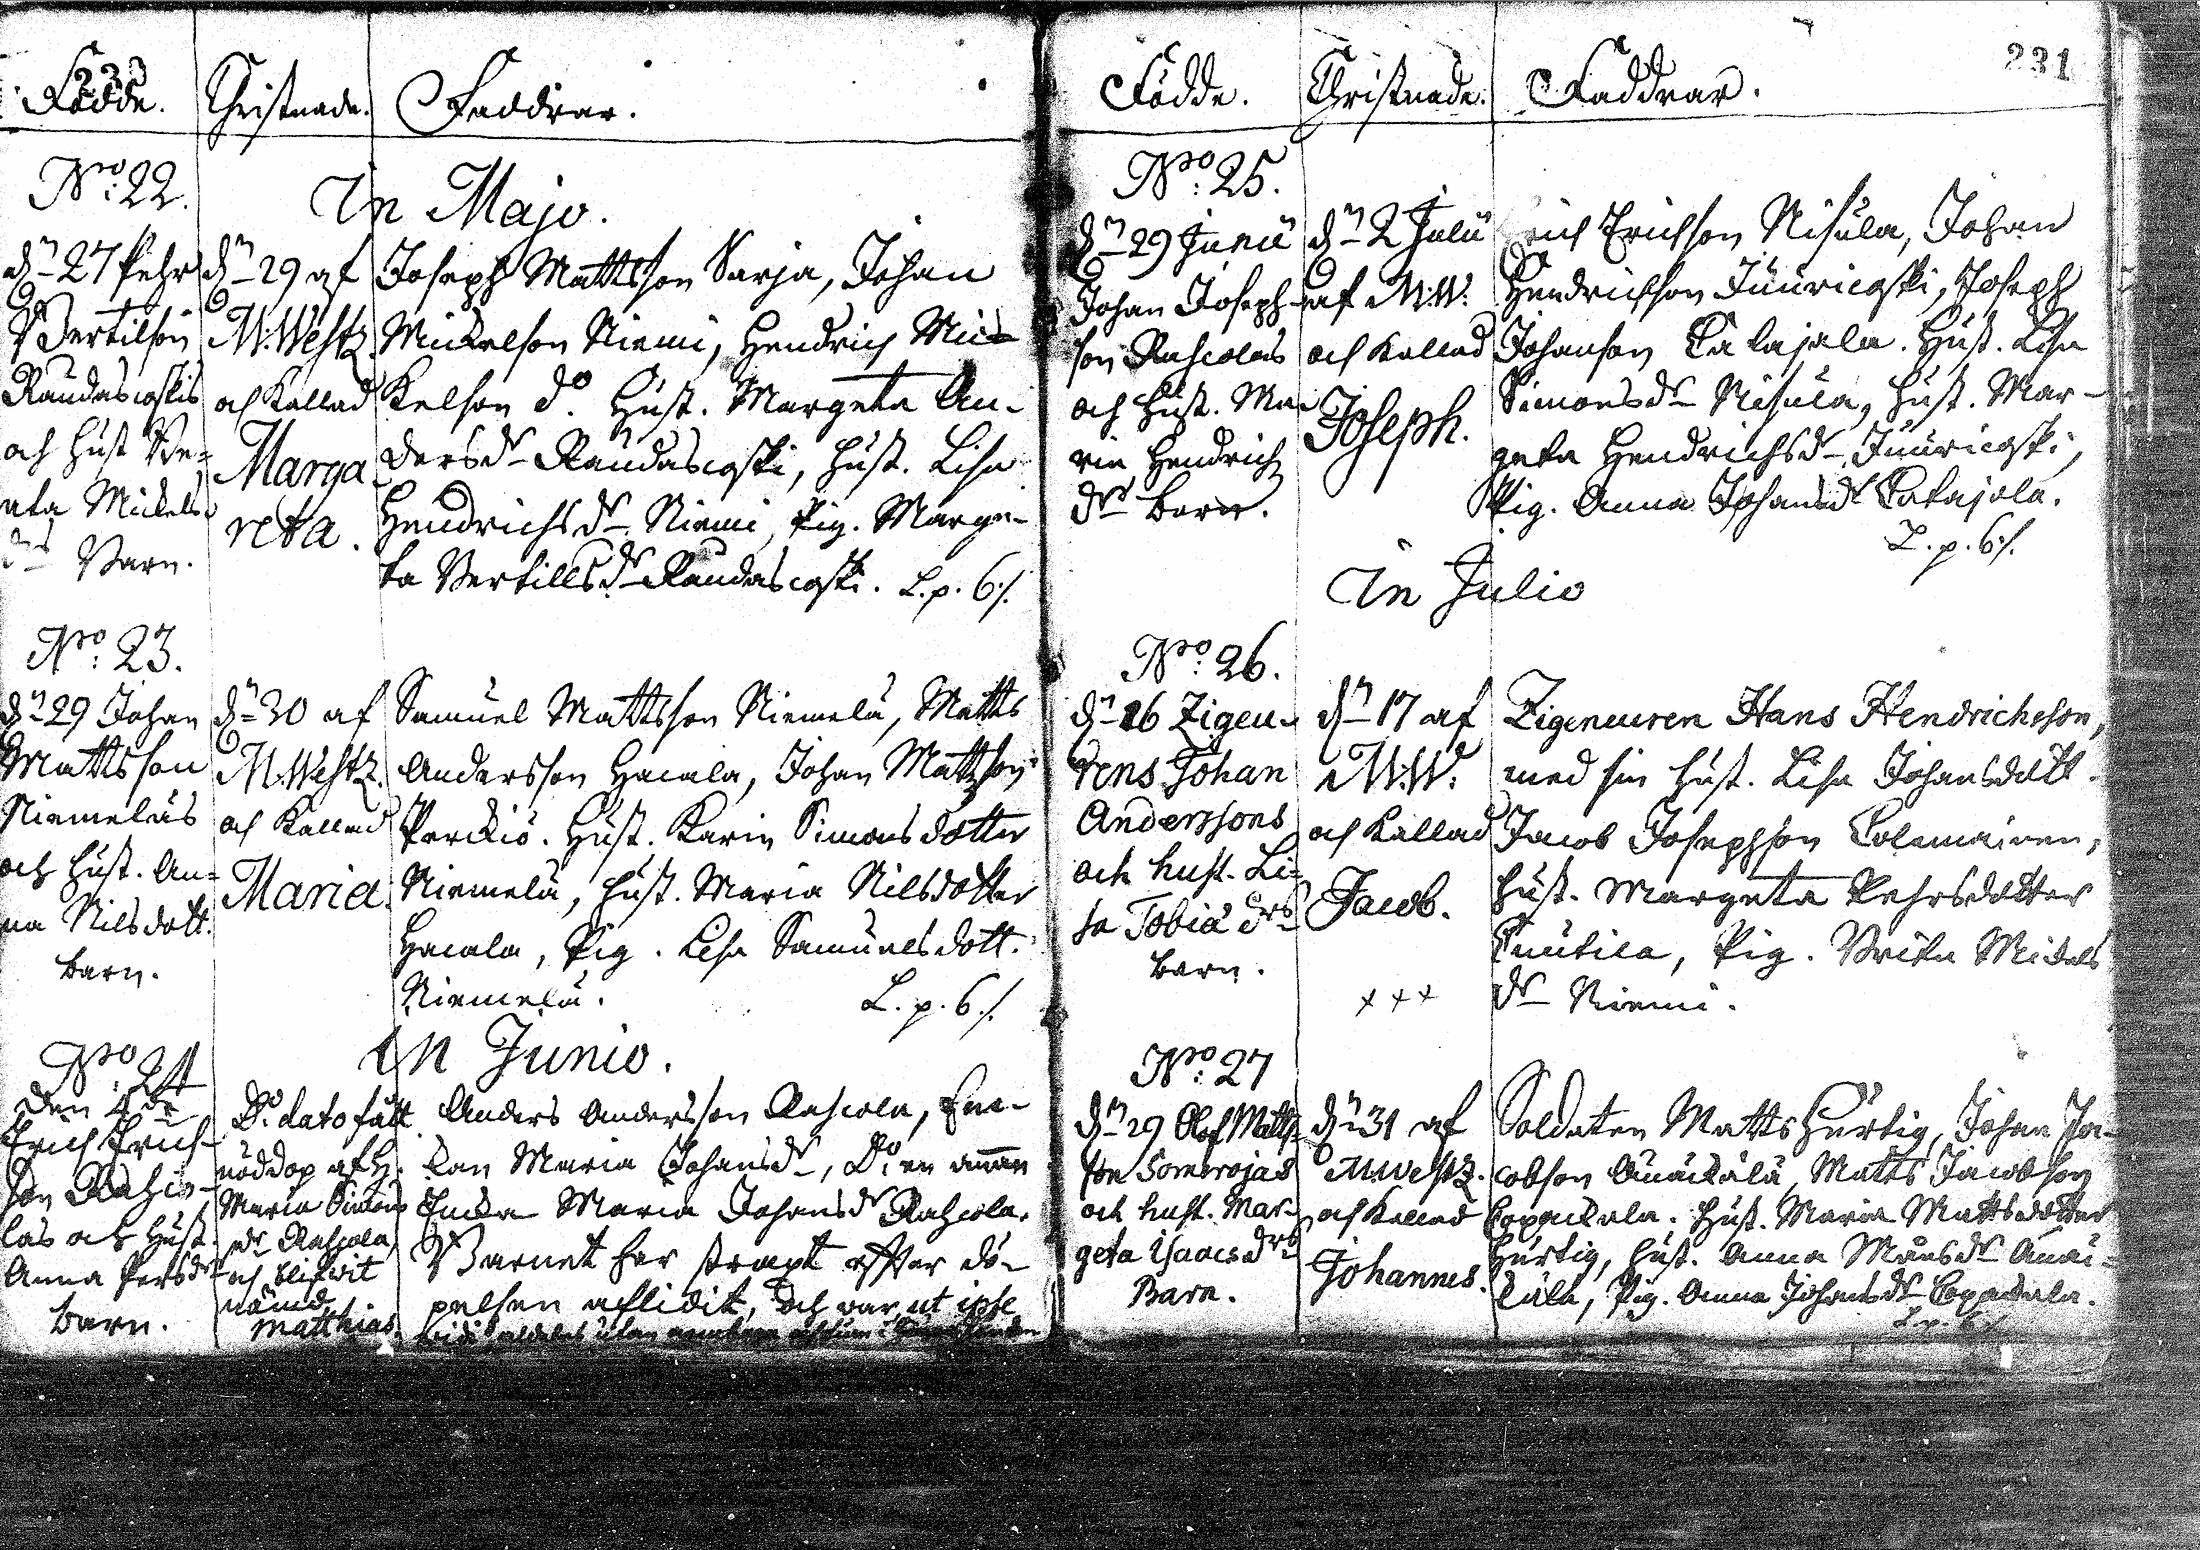 230
Födde. Christnade. Faddrar.
In Majo.
No: 22.
dn 27 Pehr
Bertilson
Raudascoskis
och Hust Be-
ata Mickels-
dr Barn.
dn 29 af
M: Westz.
och Kallad
Marga-
reta.
Joseph Mattsson Sarja, Johan
Mickelson Niemi, Hendrich Mic-
kelson do. Hust. Margeta An-
dersdr Raudascoski, Hust. Lisa
Hendrichsdr Niemi, Pig. Marge-
ta Bertillsdr Raudascoski. L.p. 6./.
No: 23.
dn 29 Johan
Mattsson
Niemeläs
och Hust. An-
na Nilsdott.
barn.
dn 30 af
M: Westz.
och Kallad
Maria.
Samuel Mattsson Niemelä, Matts
Andersson Hacala, Johan Mattsson
Perckiö. Hust. Karin Simonsdotter
Niemelä, Hust. Maria Nilsdotter
Hacala, Pig. Lisa Samuelsdott.
Niemelä. L.p. 6./.
In Junio.
No: 24
den 4de
Erich Erich-
son Rahco-
las och Hust.
Anna Persdr
barn.
Do dato fått
nöddop af H.
Maria Simons
dr Rahcola,
och blifwit
nämd
Matthias.
Anders Andersson Rahcola, Enc-
kan Maria Johansdr, Do en annan
Encka Maria Johansdr Rahcola.
Barnet har straxt efter dö-
pelsen aflidit, och war ut ipse
231
Födde. Christnade. Faddrar.
No: 25.
dn 29 Junii
Johan Joseph-
son Rahcolas
och Hust. Ma-
ria Hendrich
dr barn.
dn 2 Julii
af M:W:
och Kallad
Joseph.
Erich Erichson Nisula, Johan
Hendrichson Juuricoski, Joseph
Johanson Catajala. Hust. Lisa
Simonsdr Nisula, Hust. Mar-
geta Hendrichsdr Juuricoski,
Pig. Anna Johansdr Catajala.
L.p. 6./.
In Julio
No: 26.
dn 16 Zigeu-
rens Johan
Anderssons
och hust. Li-
sa Tobiædrs
barn.
dn 17 af
M:W:
och Kallad
Jacob.
+++
Zigeneuren Hans Hendrichsson,
med sin Hust. Lisa Johansdott.
Jacob Josephson Colemainen,
Hust. Margeta Pehrsdotter
Cuutila, Pig. Brita Mickels
dr Niemi.
No: 27
dn 29 Olof Matts-
son Somerojas
och hust. Mar-
geta Isaacsdrs
Barn.
dn 31 af
M: Westz.
och Kallad
Johannes.
Soldaten Matts Hurtig, Johan Ja-
cobson Ånäckälä, Matts Jacobson
Copackala. Hust. Maria Mattsdotter
Hurtig, Hust. Anna Månsdr Änäc-
kälä, Pig. Anna Johansdr Copackala.
L.p. 6./.